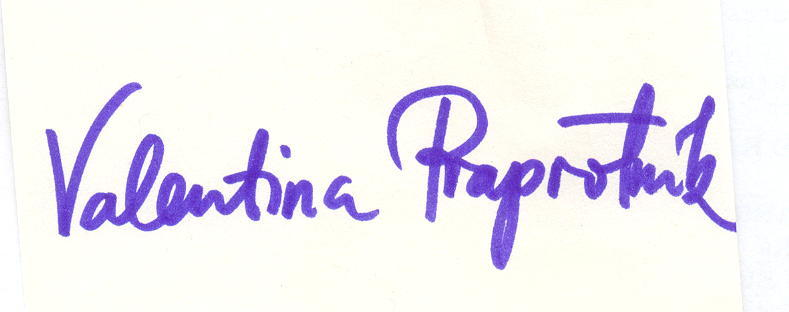 Valentina Praprotnik